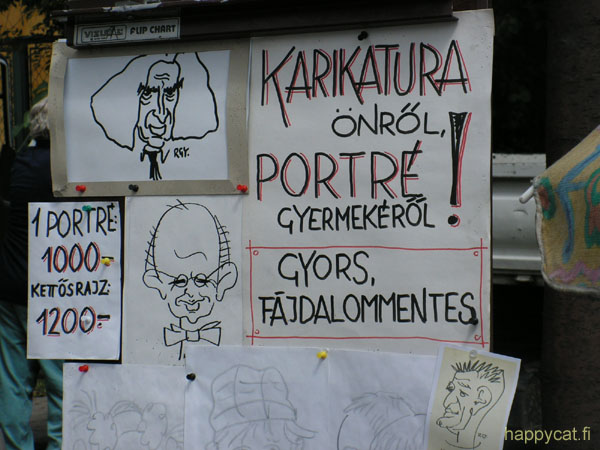 VISUAL FLIP CHART
KARIKATURA
ÖNRŐL,
PORTRÉ
GYERMEKÉRŐL !
GYORS,
FÁJDALOMMENTES
RGY.
1 PORTRÉ:
1000-
KETTŐS RAJZ:
1200.-
happycat.fi